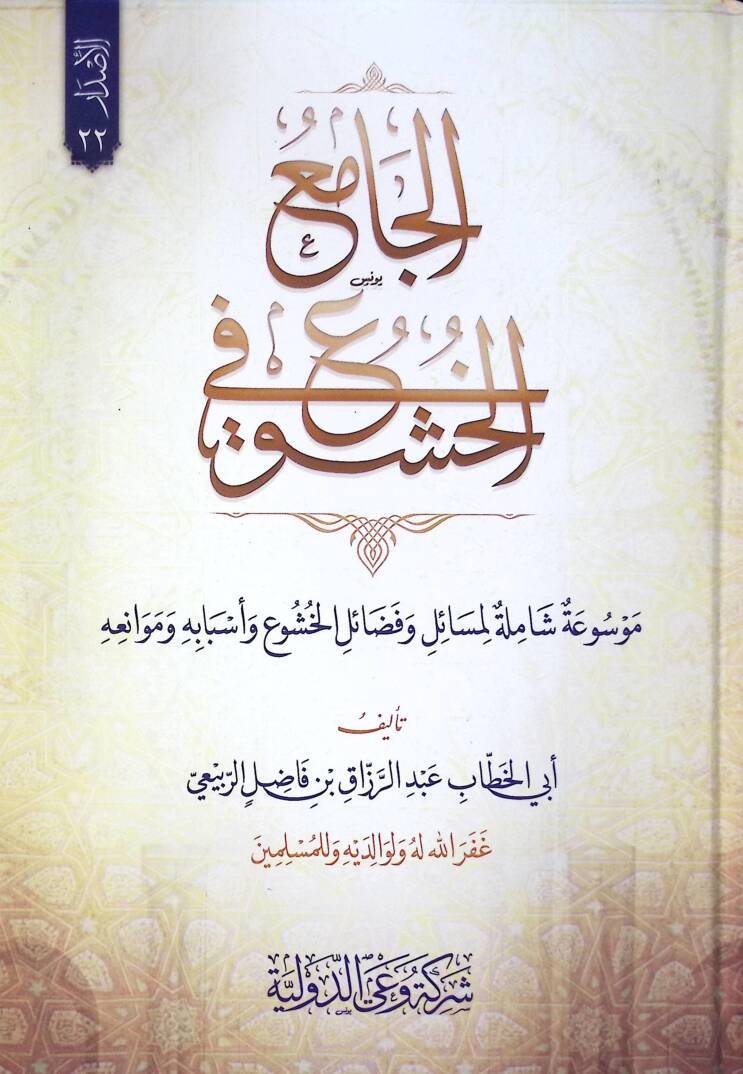 الإصدار ٢٢
الجامع
يونس
في الخشوع
مَوْسُوعَةٌ شَامِلَةٌ لِمَسَائِلِ وَفَضَائِلِ الخُشُوعِ وَأَسْبَابِهِ وَمَوَانِعِهِ
تأليفُ
أَبي الخَطَّابِ عَبْدِ الرَّزَّاقِ بْنِ فَاضِلٍ الرَّبِيعِيّ
غَفَرَ اللهُ لَهُ وَلِوَالِدَيْهِ وَلِلْمُسْلِمِينَ
شَرِكَةُ وَعْيِ الدَّوْلِيَّة
يونس